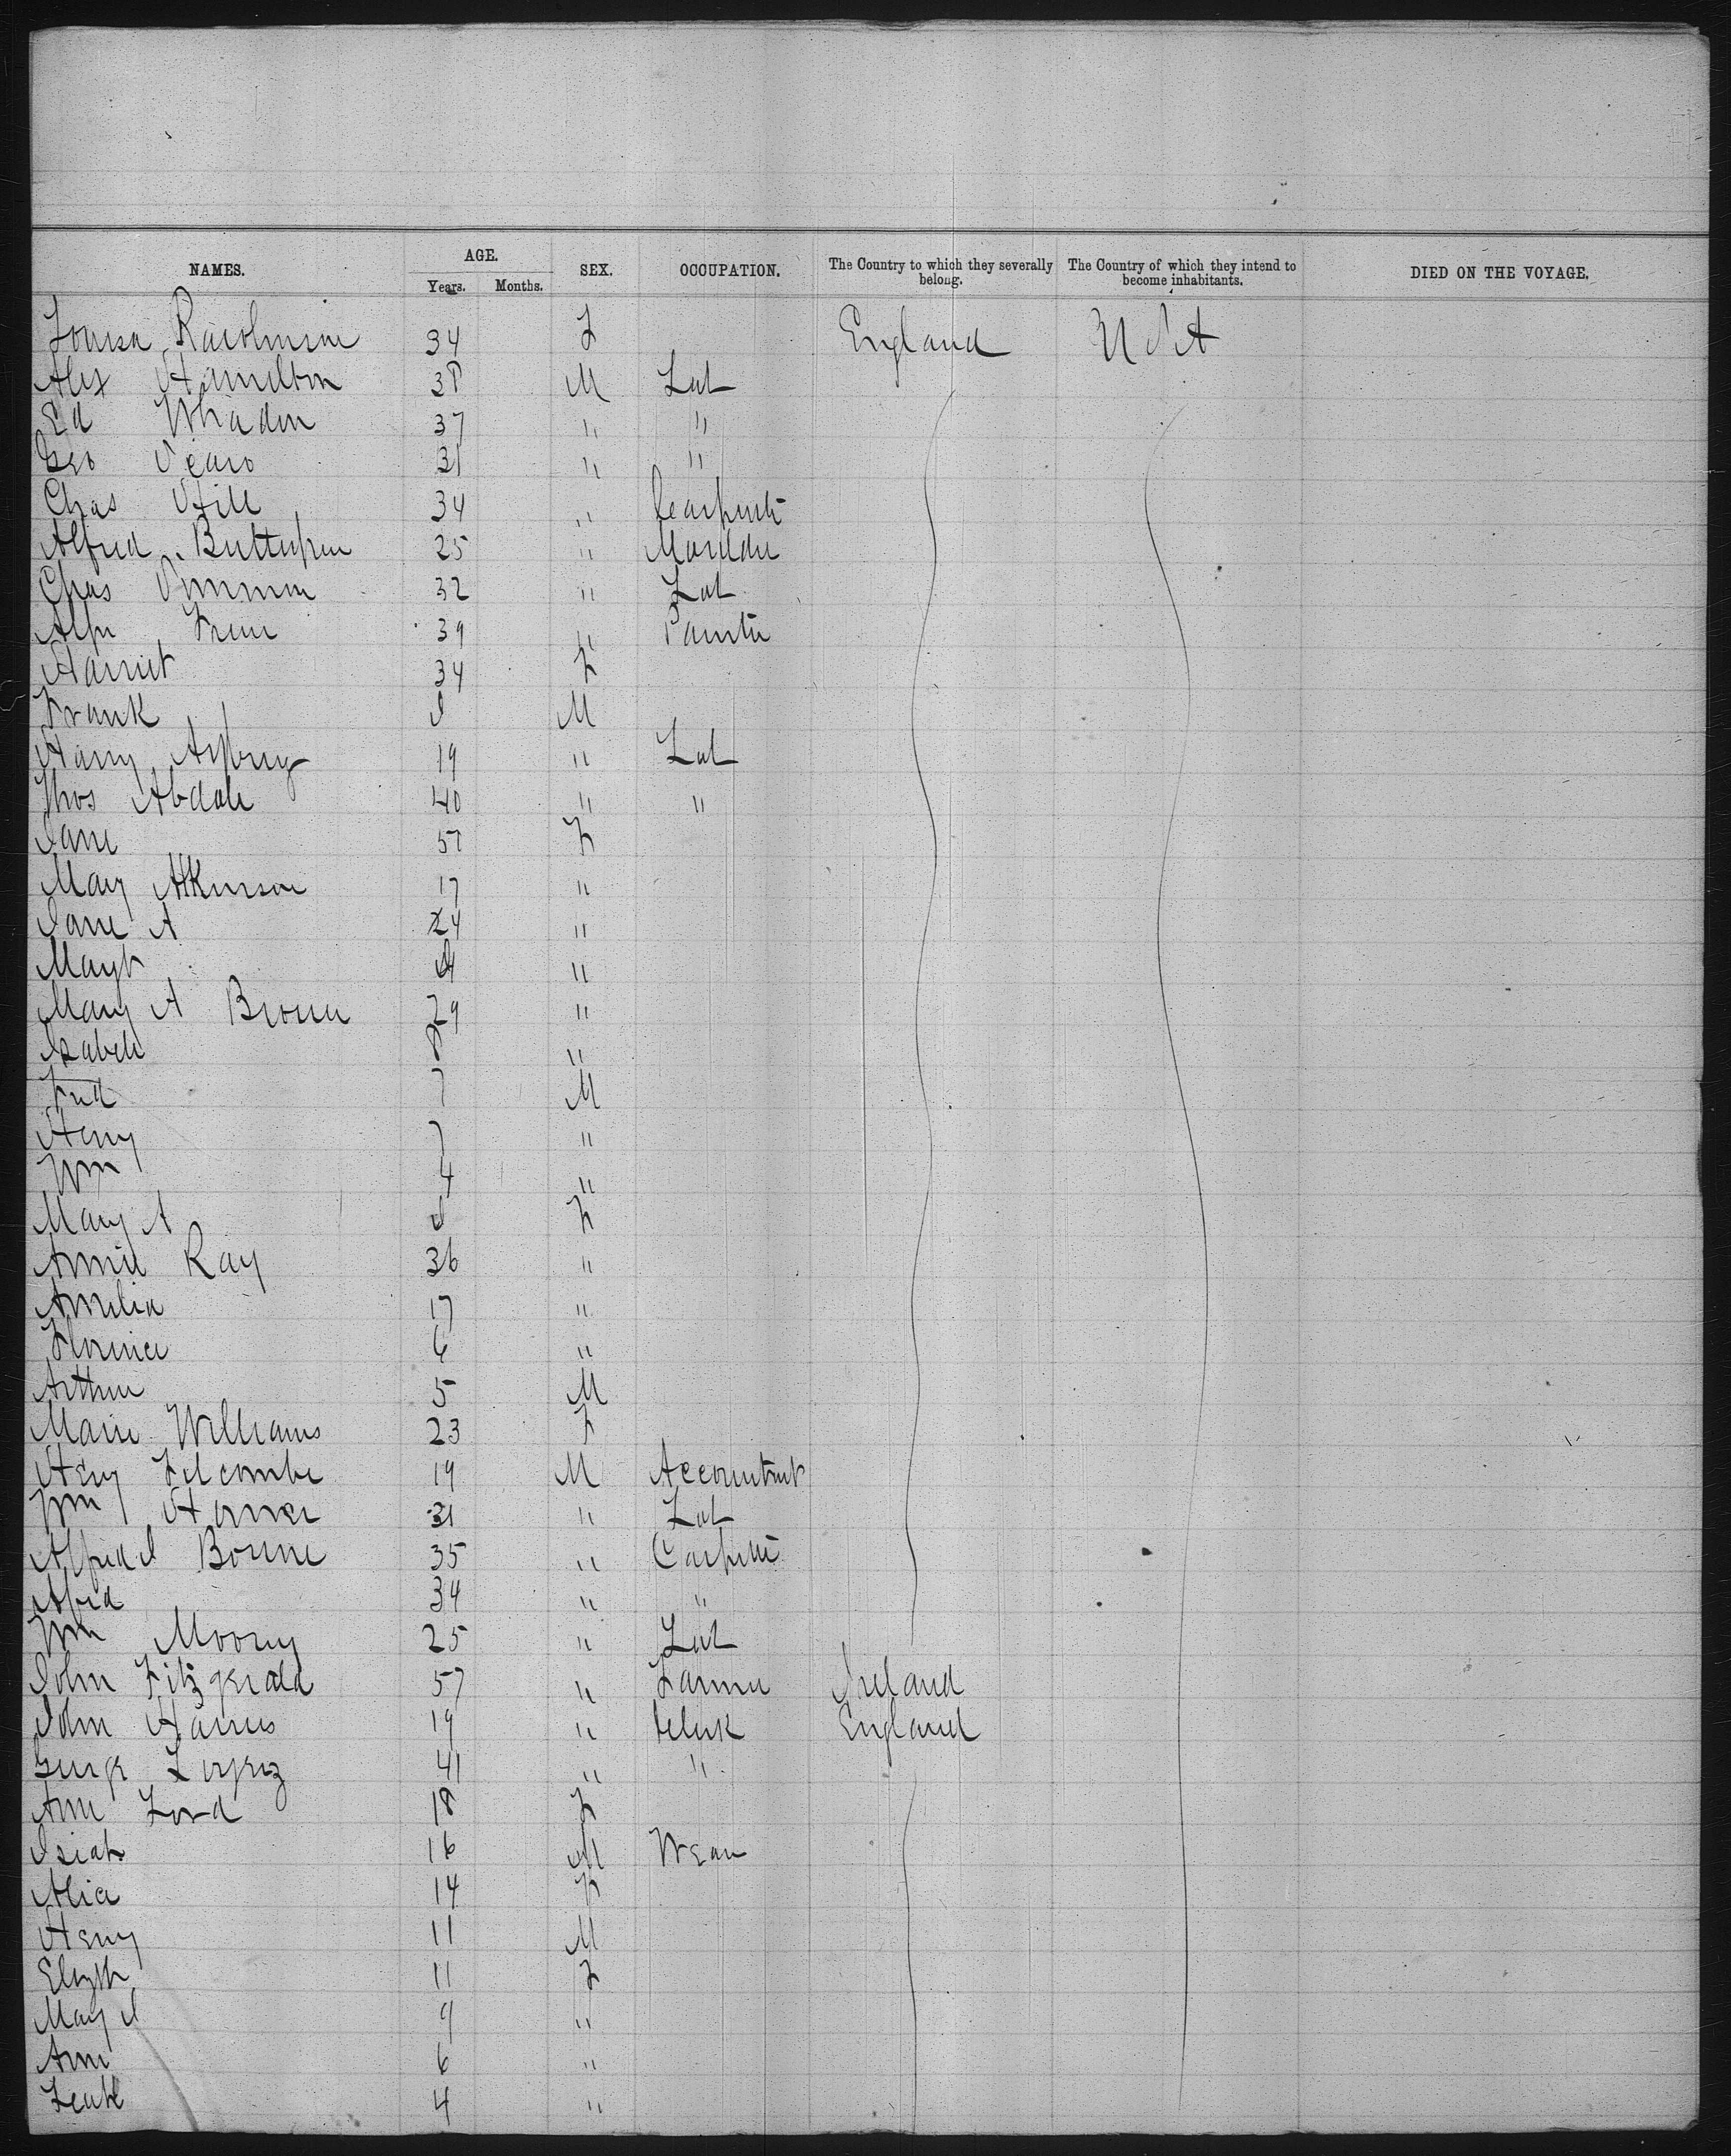 NAMES. AGE. SEX. OCCUPATION. The Country to which they severally belong. The Country of which they intend to become inhabitants. DIED ON THE VOYAGE.
Years. Months.
Louisa 34 F England U S A
Alex Hamilton 38 M Lab
Ed Whadon 37 " "
Geo 31 " "
Chas Hill 34 " Carpentr
Alfred 25 " Moulder
Chas 32 " Lab
Alfr 39 " Painter
Harriet 34 F
Frank M
Harry 19 " Lab
Thos Abdale 40 " "
Jane 57 F
Mary Atkinson 17 "
Jane A 24 "
Magt "
Mary A Brown 29 "
Isabell 8 "
Fred 7 M
Henry 7 "
Wm 4 "
Mary A F
Annie Ray 36 "
Amelia 17 "
Florence 6 "
Arthur 5 M
Marie Williams 23 F
Heny Felcombe 19 M Accountant
Wm 31 " Lab
Alfred J Bourne 35 " Carpentr
Alfred 34 " "
Wm Moony 25 " Lab
John Fitzgerald 57 " Farmer Ireland
John Harris 19 " Clerk England
George Lopez 41 " "
Ann Ford 18 F
Isiah 16 M Weav
Alice 14 F
Henry 11 M
Elizth 11 F
Mary J 9 "
Ann 6 "
Leah 4 "